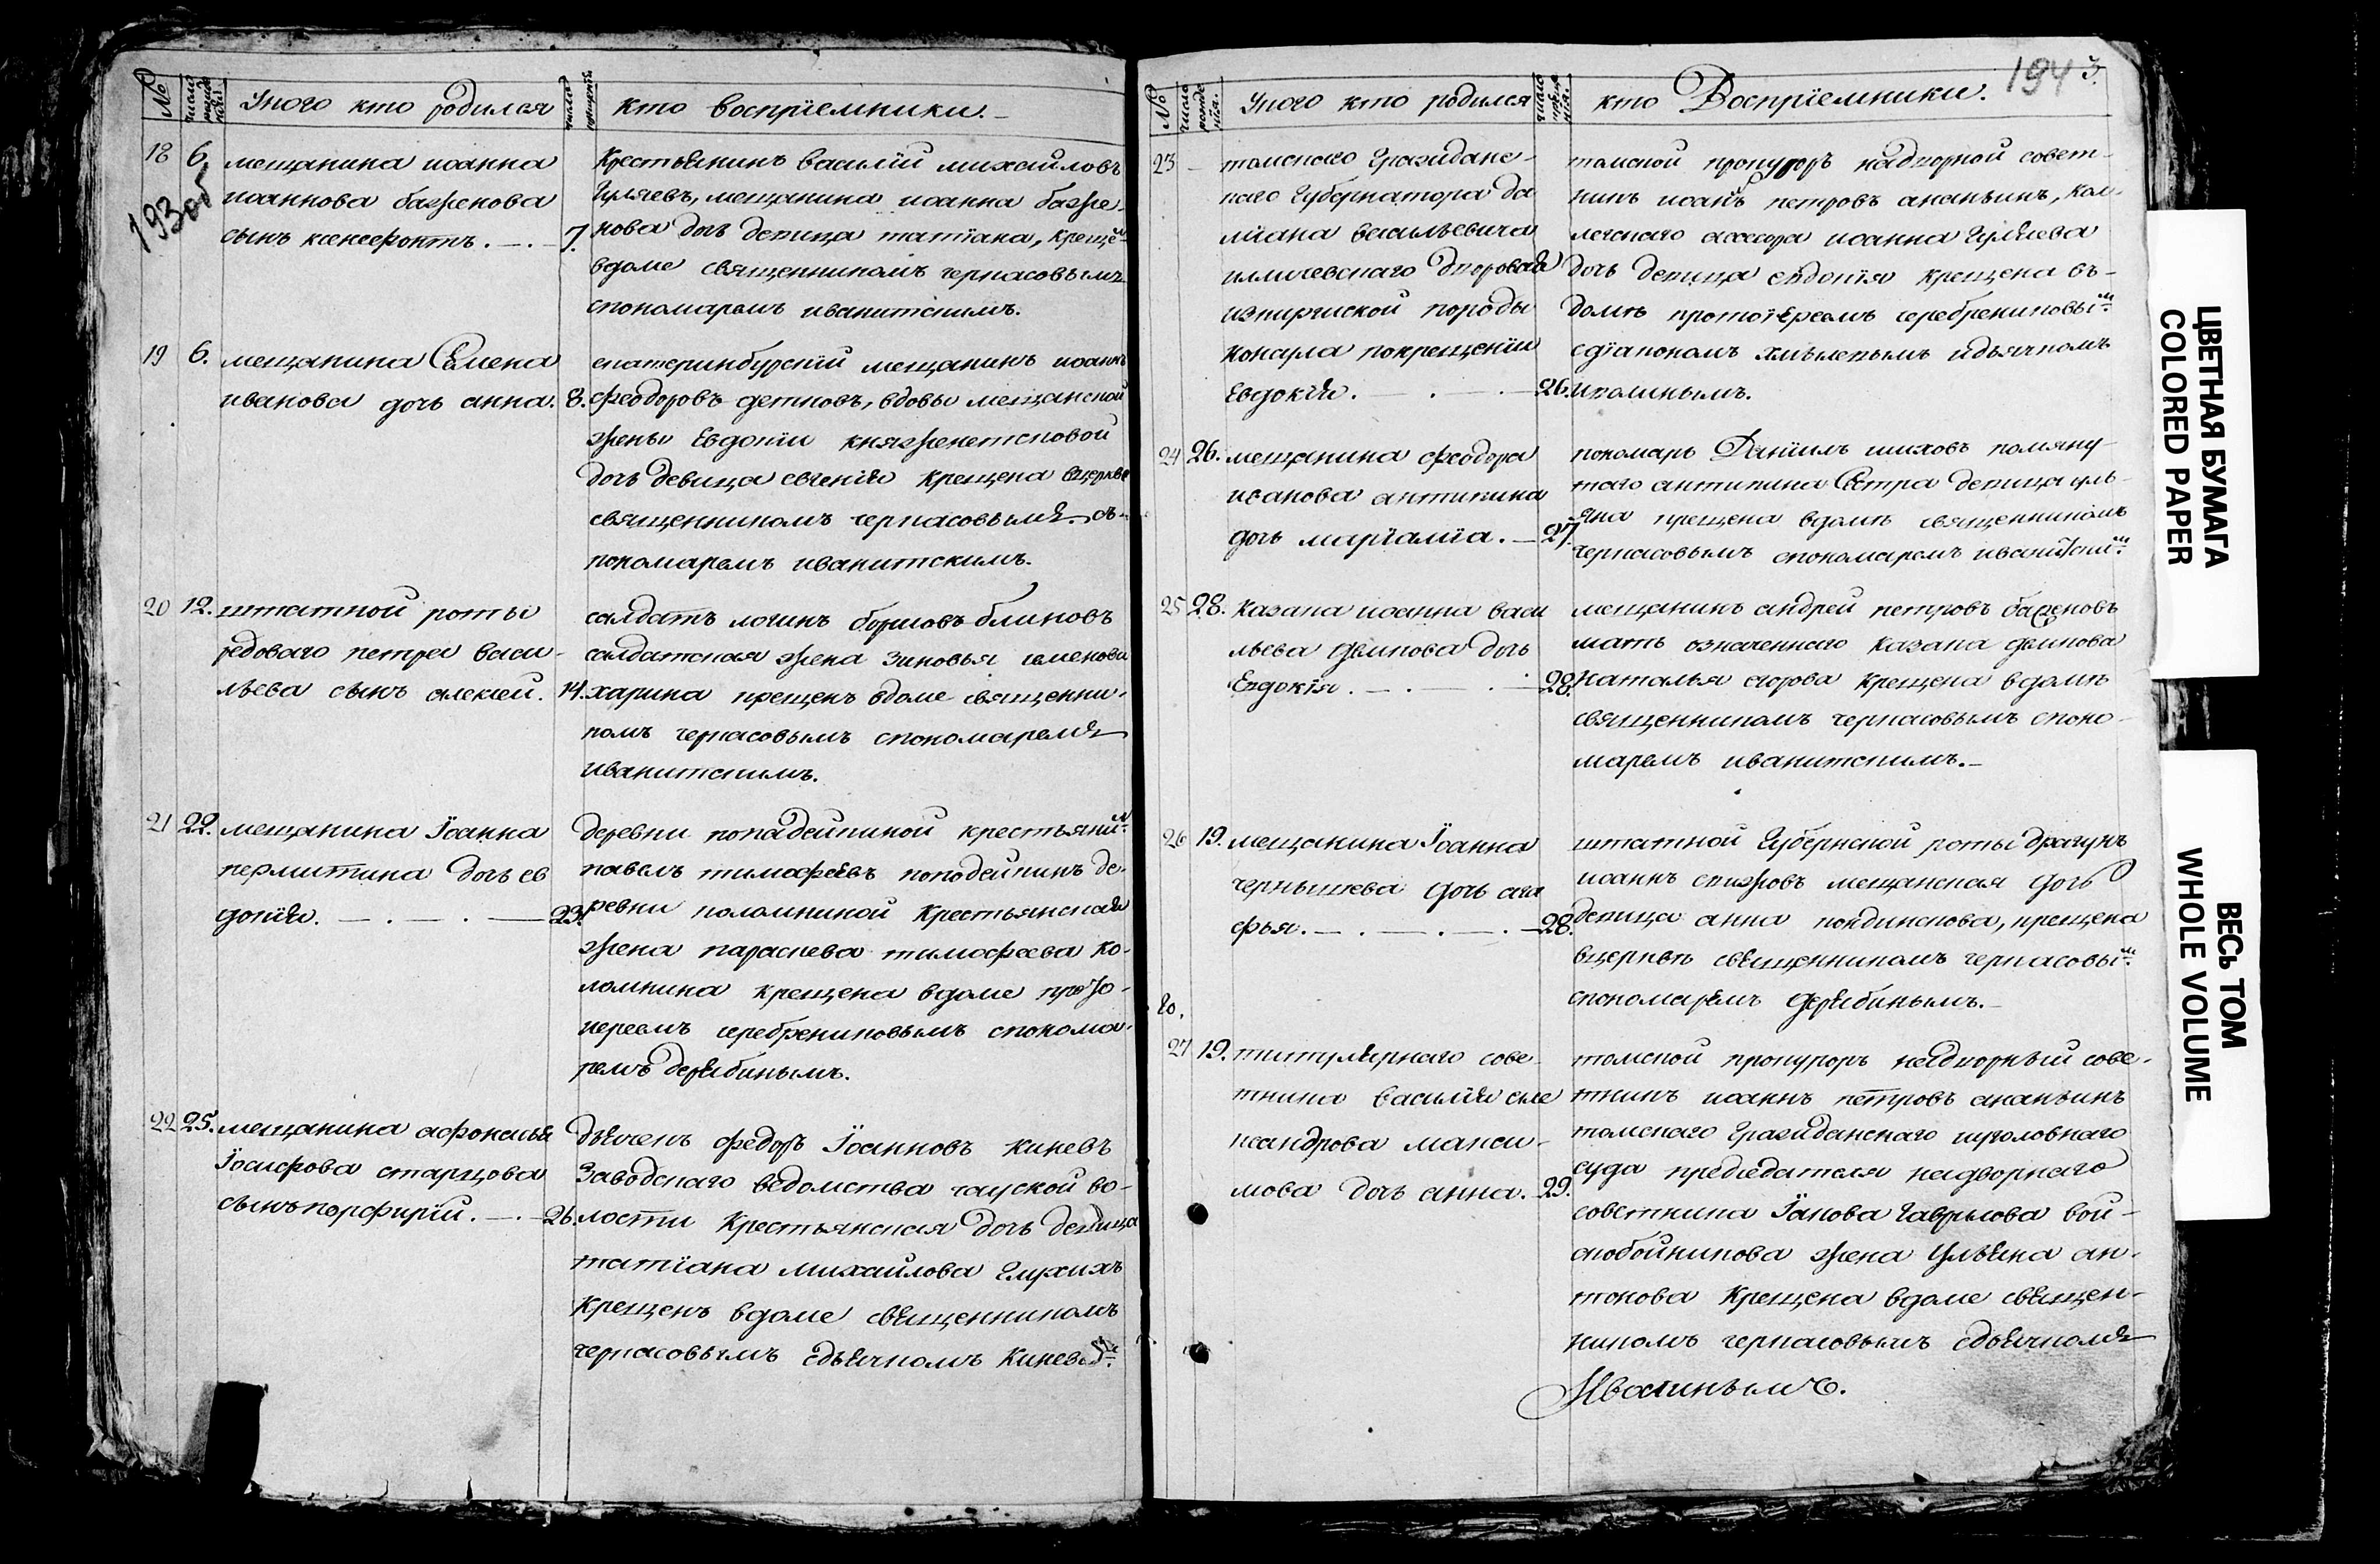 №
число рожде нія.
У кого кто родился
число крещенія
кто воспріемники.
18
6.
мещанина иоанна
иоаннова баженова
сынъ ксенефонтъ. — . — 7.
193 об
Крестьянинъ василій михайловъ
Гуляевъ, мещанина иоанна баже-
нова дочь девица татіана, креще
вдоме священникомъ черкасовымъ
спономаремъ иванитскимъ.
19
6.
мещанина Семена
иванова дочь анна. 8.
екатеринбургскій мещанинъ иоаннъ
феодоровъ детковъ, вдовы мещанской
жены Евдокіи княженетсковой
дочь девица евгенія крещена вцеркве
священникомъ черкасовымъ съ-
пономаремъ иванитскимъ.
20
12.
штатной роты
редоваго петра васи-
льева сынъ алексей. 14.
салдатъ логинъ борисовъ блиновъ
салдатская жена зиновья семенова
харина крещенъ вдоме священни-
комъ черкасовымъ спономаремъ
иванитскимъ.
21
22.
мещанина Іоанна
пермитина дочь ев
докія. — . — . — 23.
деревни попадейкиной крестьянинъ
павелъ тимофеевъ поподейкинъ де-
ревни коломниной Крестьянская
жена параскева тимофеева ко-
ломнина крещена вдоме прото-
иереемъ серебрениковымъ спонома-
ремъ дерябинымъ.
22
25.
мещанина афонасья
Іосифова старцова
сынъ порфирій. — . — 26.
дьяченъ федоръ Іоанновъ Киневъ
Заводскаго ведомства чауской во-
лости Крестьянская дочь девица
татіана михайлова Глухихъ
Крещенъ вдоме священникомъ
черкасовымъ сдьячкомъ Киневымъ.
№
число рожде нія.
У кого кто родился
число креще нія.
кто Воспріемники.
194
3.
23
томскаго Гражданс-
каго Губернатора да
міана васильевича
илличевскаго дворовая
изкиргиской породы
Конарла покрещеніи
Евдокія. — . — . — 26.
томской прокуроръ надворной совет-
никъ иоаннъ петровъ ананьинъ, кол-
лежскаго ассесора иоанна Гуляева
дочь девица евдокія Крещена въ-
доме протоіереемъ серебрениковымъ
сдіакономъ хмылевымъ идьячкомъ
иволинымъ.
24
26.
мещанина феодора
исакова антипина
дочь маріамія. — 27.
пономарь Даніилъ шиховъ помяну-
таго антипина Сестра девица уль-
яна крещена вдоме священникомъ
черкасовымъ спономаремъ иванитскимъ.
25
28.
Казака иоанна васи
льева фелкова дочь
Евдокія. — . — . — 28.
мещанинъ андрей петровъ баженовъ
мать означеннаго казака фелкова
Наталья егорова Крещена вдоме
священникомъ черкасовымъ споно-
маремъ иванитскимъ.—
26
19.
мещанина Іоанна
чернышева дочь ага
фья. — . — . — . — 28.
штатной Губернской роты драгунъ
иоаннъ спижовъ мещанская дочь
девица анна кондинскова, крещена
вцеркве священникомъ черкасовымъ
спономаремъ дерябинымъ.—
80.
27
19.
титулярнаго сове-
тника василія але
ксандрова макси-
мова дочь анна. 29.
томской прокуроръ надворный сове-
тникъ иоаннъ петровъ ананьинъ
томскаго Гражданскаго иуголовнаго
суда председателя надворнаго
советника Іакова Гаврилова вой-
слобойникова жена Ульяна ан-
тонова Крещена вдоме священ-
никомъ черкасовымъ сдьячкомъ
Иволинымъ.
ЦВЕТНАЯ БУМАГА
COLORED PAPER
ВЕСЬ ТОМ
WHOLE VOLUME